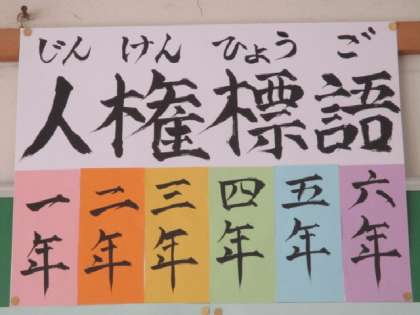 じんけんひょうご
人権標語
一年
二年
三年
四年
五年
六年